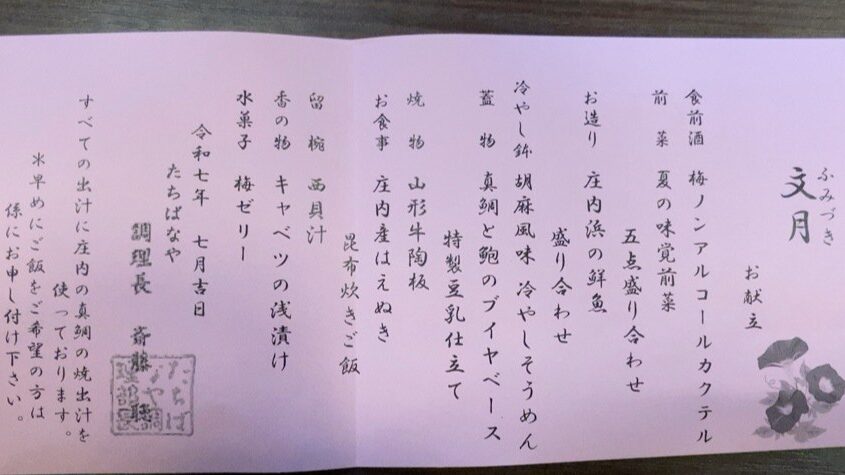 ふみづき
文月
お献立
食前酒 梅ノンアルコールカクテル
前菜 夏の味覚前菜
五点盛り合わせ
お造り 庄内浜の鮮魚
盛り合わせ
冷やし鉢 胡麻風味 冷やしそうめん
蓋物 真鯛と鮑のブイヤベース
特製豆乳仕立て
焼物 山形牛陶板
お食事 庄内産はえぬき
昆布炊きご飯
留椀 西貝汁
香の物 キャベツの浅漬け
水菓子 梅ゼリー
令和七年 七月吉日
たちばなや
調理長 斎藤 聡
たちばなや調理部長
すべての出汁に庄内の真鯛の焼出汁を
使っております。
※早めにご飯をご希望の方は
係にお申し付け下さい。